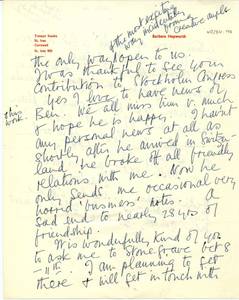 Trewyn Studio
St. Ives
Cornwall
St. Ives
Barbara Hepworth
& the most exciting
way
from
creative
the only way open to us.
I was thankful to see your
contribution to Stockholm Congress
Yes I love to have news of
Ben. We all miss him v. much
& his
work.
& hope he is happy. I haven't
any personal news at all as
shortly after he arrived in Switzer-
land he broke off all friendly
relations with me. Now he
only sends me occasional very
horrid 'business' notes. A
sad end to nearly 28 yrs of
friendship.
It is wonderfully kind of you
to ask me to Stonegrave Oct 8
-11th. I am planning to get
there & will get in touch with